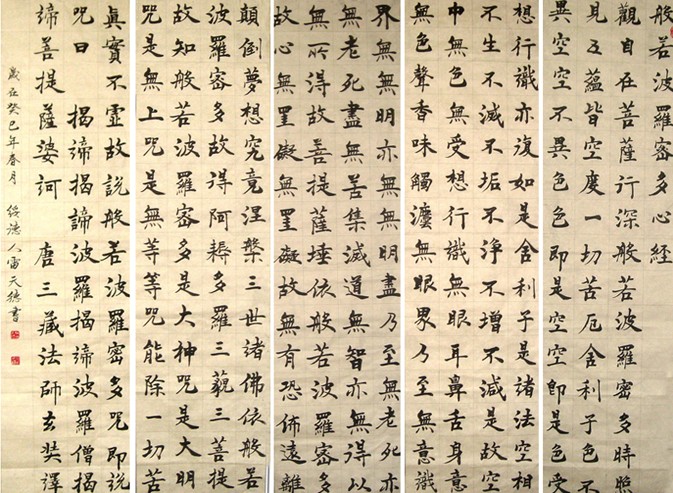 般若波羅密多心經
觀自在菩薩行深般若波羅密多時照
見五蘊皆空度一切苦厄舍利子色不
異空空不異色色即是空空即是色受
想行識亦復如是舍利子是諸法空相
不生不滅不垢不淨不增不減是故空
中無色無受想行識無眼耳鼻舌身意
無色聲香味觸灋無眼界乃至無意識
界無無明亦無無明盡乃至無老死亦
無老死盡無苦集滅道無智亦無得以
無所得故菩提薩埵依般若波羅密多
故心無罣礙無罣礙故無有恐怖遠離
顛倒夢想究竟涅槃三世諸佛依般若
波羅密多故得阿耨多羅三藐三菩提
故知般若波羅密多是大神咒是大明
咒是無上咒是無等等咒能除一切苦
真實不虛故說般若波羅密多咒即說
咒曰 揭諦揭諦波羅揭諦波羅僧揭
諦菩提薩婆訶 唐三藏法師玄奘譯
歲在癸巳年春月 綏德人雷天德書